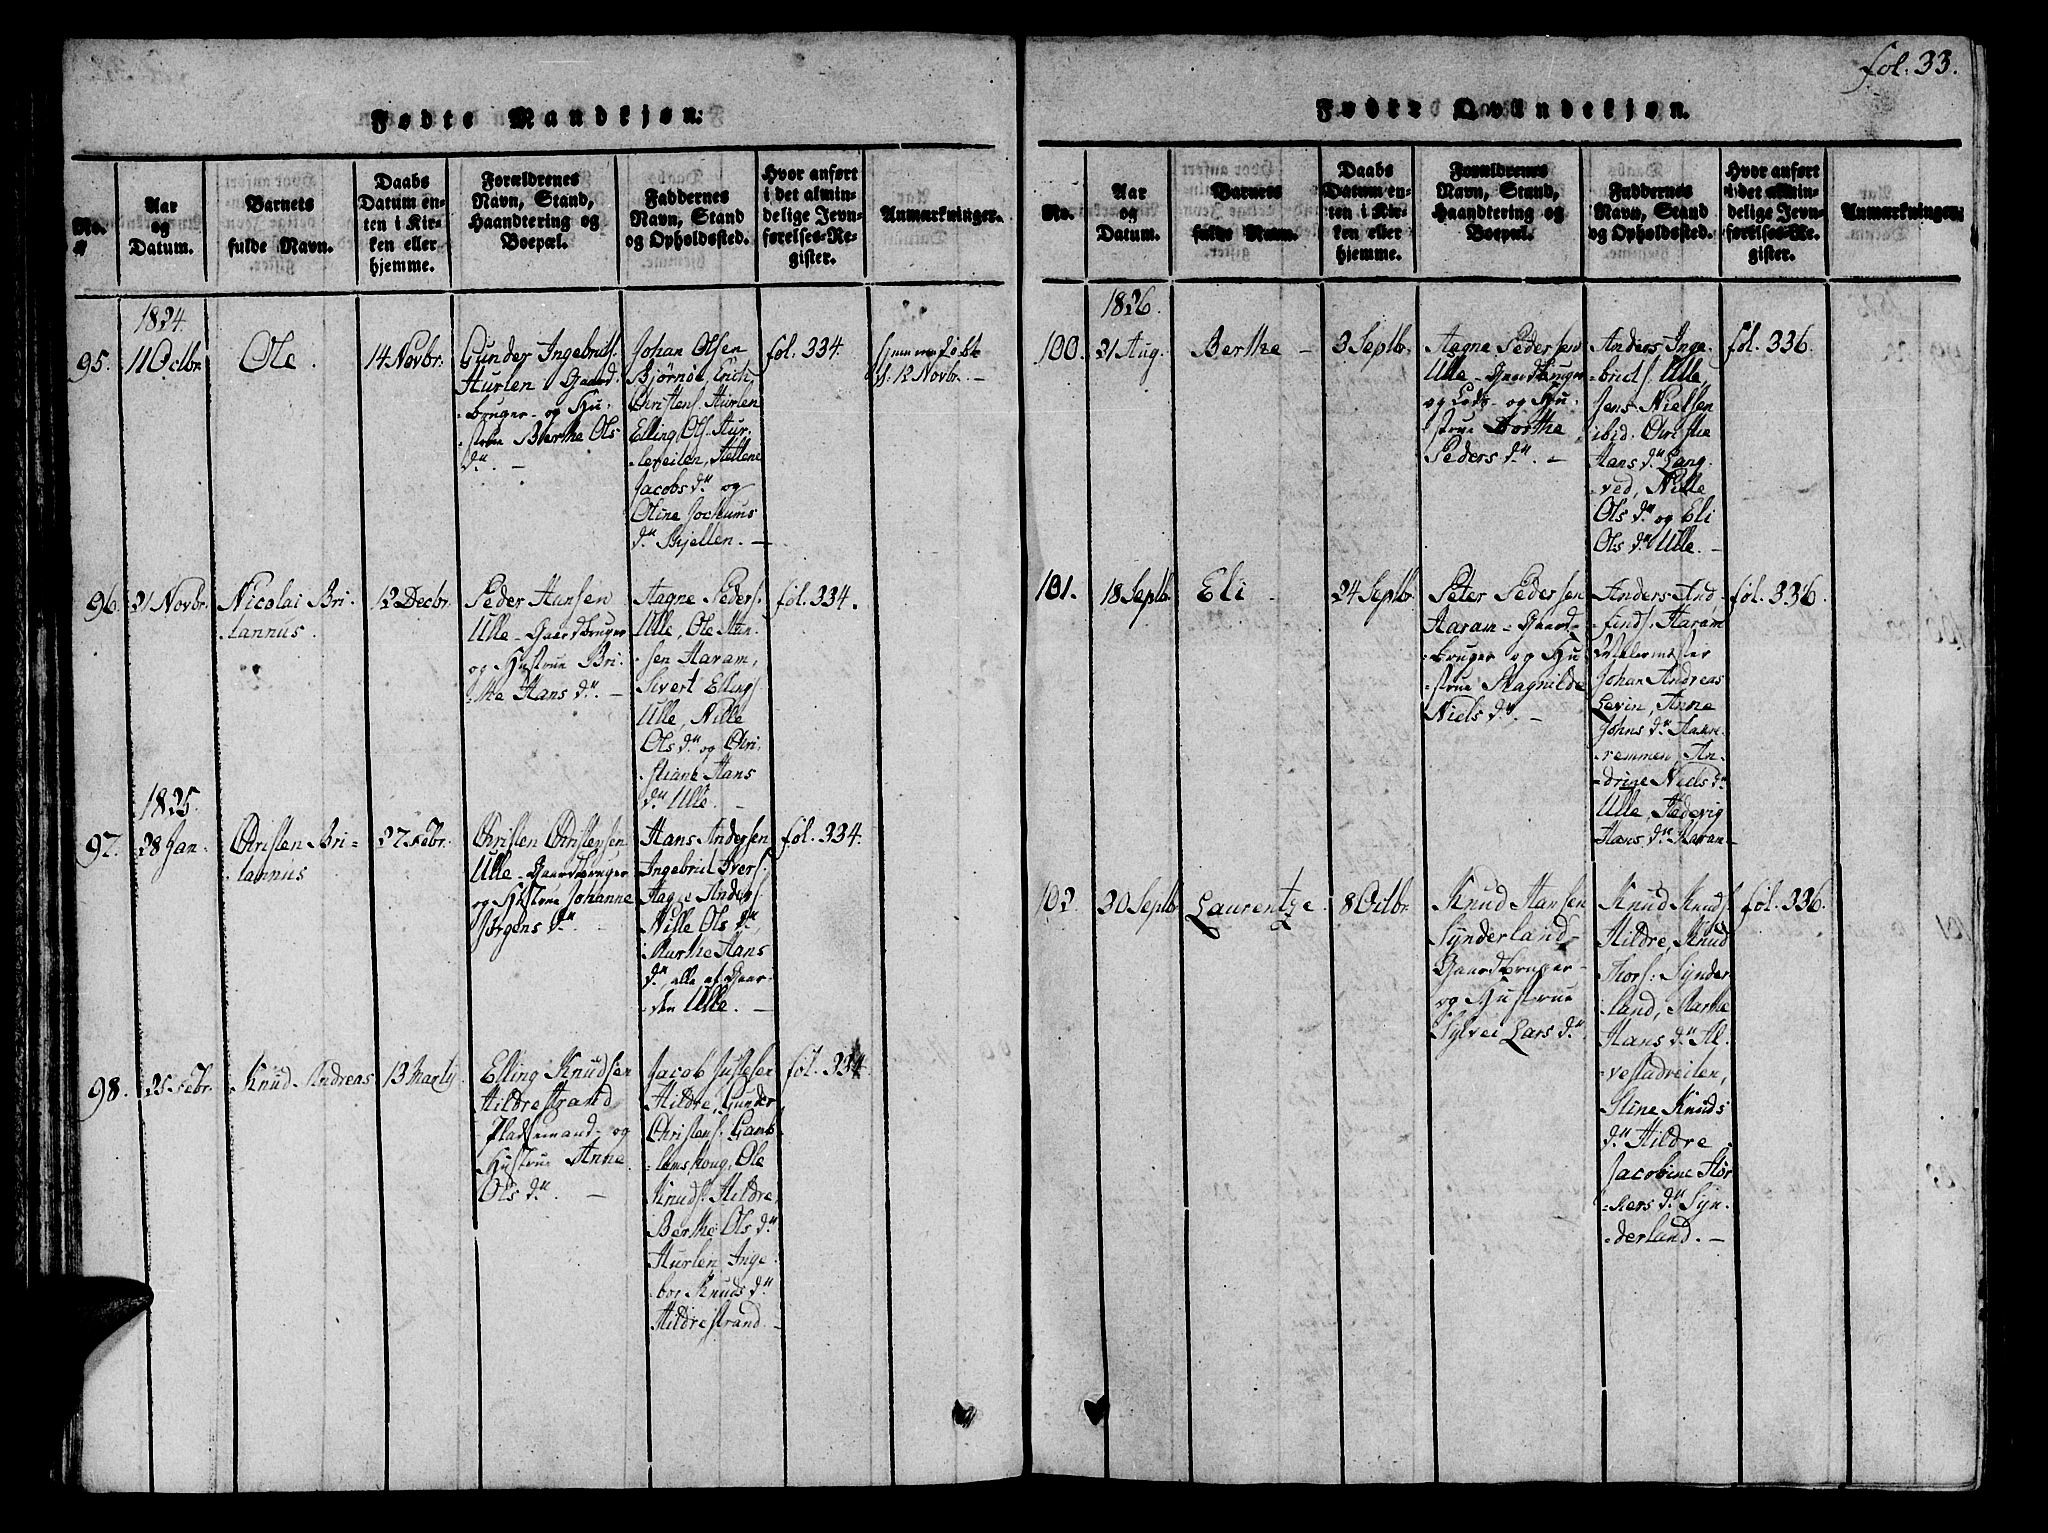 fol. 33.
Fødte Mandkjøn:
No.
Aar
og
Datum.
Barnets
fulde Navn.
Daabs
Datum en-
ten i Kir-
ken eller
hjemme.
Forældrenes
Navn, Stand,
Haandtering og
Boepæl.
Faddernes
Navn, Stand
og Opholdssted.
Hvor anført
i det almin-
delige Jevn-
førelses-Re-
gister.
Anmærkninger.
1824
95.
11 Octbr.
Ole.
14 Novbr.
Gunder Ingebrits.
Hurlen Gaard-
-bruger- og Hu-
-strue Berthe Ols
dr. -
Johan Olsen
Bjørnøe, Erich
Christens. Hurlen
Elling Ols. Hur-
-lereilen, Hellene
Jacobs dr. og
Oline Jochums
dr. Skjellen. -
fol. 334.
hjemmedøbt
d. 12 Novbr. -
96.
21 Novbr.
Nicolai Bri-
-tannus.
12 Decbr.
Peder Hansen
Ulle - Gaardbruger
og Hustrue Bri-
-the Hans dr. -
Aagne Peders.
Ulle, Ole Han-
-sen Haram,
Sivert Ellings.
Ulle, Nille
Ols dr. og Chri-
-stiane Hans
dr. Ulle. -
fol. 334.
1825.
97.
28 Jan.
Christen Bri-
-tannus
27 Febr.
Christen Christensen
Ulle - Gaardbruger
og Hustrue Johanne
Jørgens dr. -
Hans Andersen
Ingebrict Ivers.
Aagne Anders.
Nille Ols dr.,
Marthe Hans
dr., alle af Gaar-
-den Ulle. -
fol. 334.
98.
25 Febr.
Knud Andreas
13 Martij
Elling Knudsen
Hildrestrand
Pladsemand- og
Hustrue Anne
Ols dr. -
Jacob Justesen
Hildre, Gunder
Christens. Gamb-
-lemskoug, Ole
Knuds. Hildre
Berthe Ols dr.
Hurlen, Inge-
-bor Knuds dr.
Hildrestrand. -
fol. 334
Fødte Qvindekjøn.
No.
Aar
og
Datum.
Barnets
fulde Navn.
Daabs
Datum en-
ten i Kir-
ken eller
hjemme.
Forældrenes
Navn, Stand,
Haandtering og
Boepæl.
Faddernes
Navn, Stand
og Opholdssted.
Hvor anført
i det almin-
delige Jevn-
førelses-Re-
gister.
Anmærkninger.
1826.
100.
21 Aug.
Berthe -
3 Septbr.
Aagne Pedersen
Ulle - Gaardbruger
og Lods- og Hu-
-strue Dorthe
Peders dr. -
Anders Inge-
-brits. Ulle,
Jens Nielsen
ibid. Christie
Hans dr. Lang-
-ved, Nille
Ols dr. og Eli
Ols dr. Ulle. -
fol. 336.
101.
18 Septbr.
Eli -
24 Septbr.
Peter Pedersen
Haram - Gaard-
-bruger og Hu-
-strue Magnilde
Niels dr. -
Anders And-
-finds. Haram
Johan Andreas
Levin, Anne
Johns dr. Haure-
-remmen, An-
-drine Niels dr.
Ulle, Hedevig
Hans dr. Haram -
fol. 336.
102.
30 Septbr.
Laurentze.
8 Octbr.
Knud Hansen
Synderland -
Gaardbruger-
og Hustrue
Sylvei Lars dr.
Knud Knuds.
Hildre, Knud
Thors. Synder-
-land, Marthe
Hans dr. Al-
-vestadreilen,
Stine Knuds
dr. Hildre
Jacobine Hør-
-kers dr. Syn-
-derland. -
fol. 336.